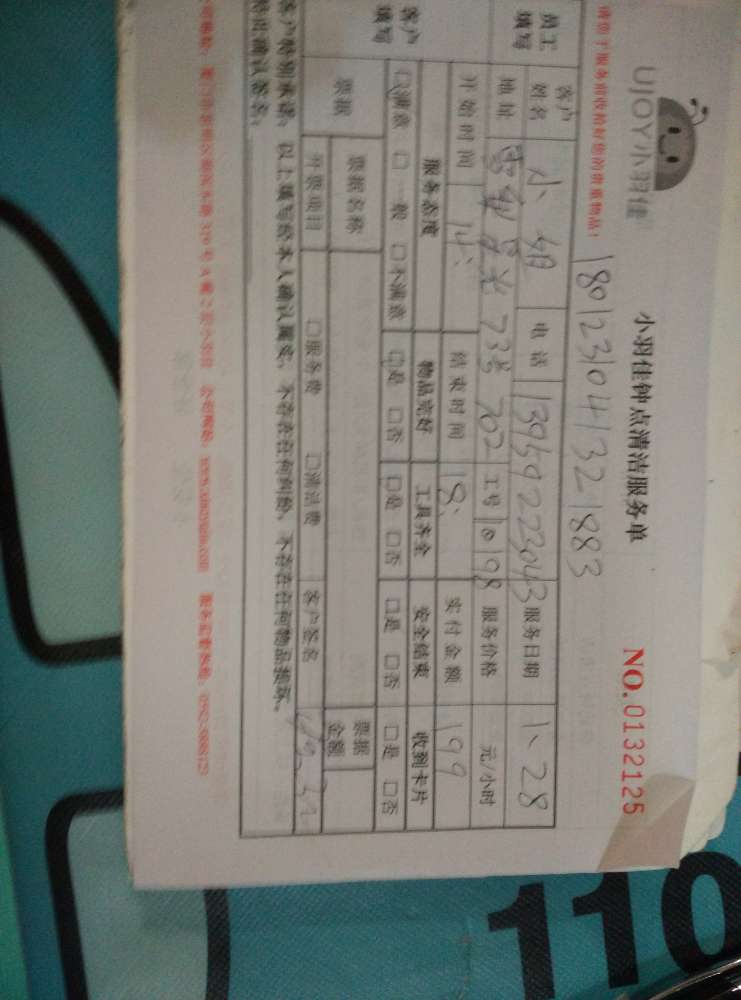 UJOY小羽佳
小羽佳钟点清洁服务单
NO.0132125
请您于服务前收拾好您的贵重物品!
1801231041321883
员工填写
客户姓名 小姐 电话 13959223043 服务日期 1、28
地址 73号 702 工号 10198 服务价格 元/小时
开始时间 14: 结束时间 18: 实付金额 199
客户填写
服务态度 物品完好 工具齐全 安全结束 收到卡片
□满意 □一般 □不满意 □是 □否 □是 □否 □是 □否 □是 □否
票据 票据名称 票据金额
开票项目 □服务费 □清洁费 客户签名
客户特别承诺: 以上填写经本人确认属实, 不存在任何纠纷, 不存在任何物品损坏。
特此确认签名。